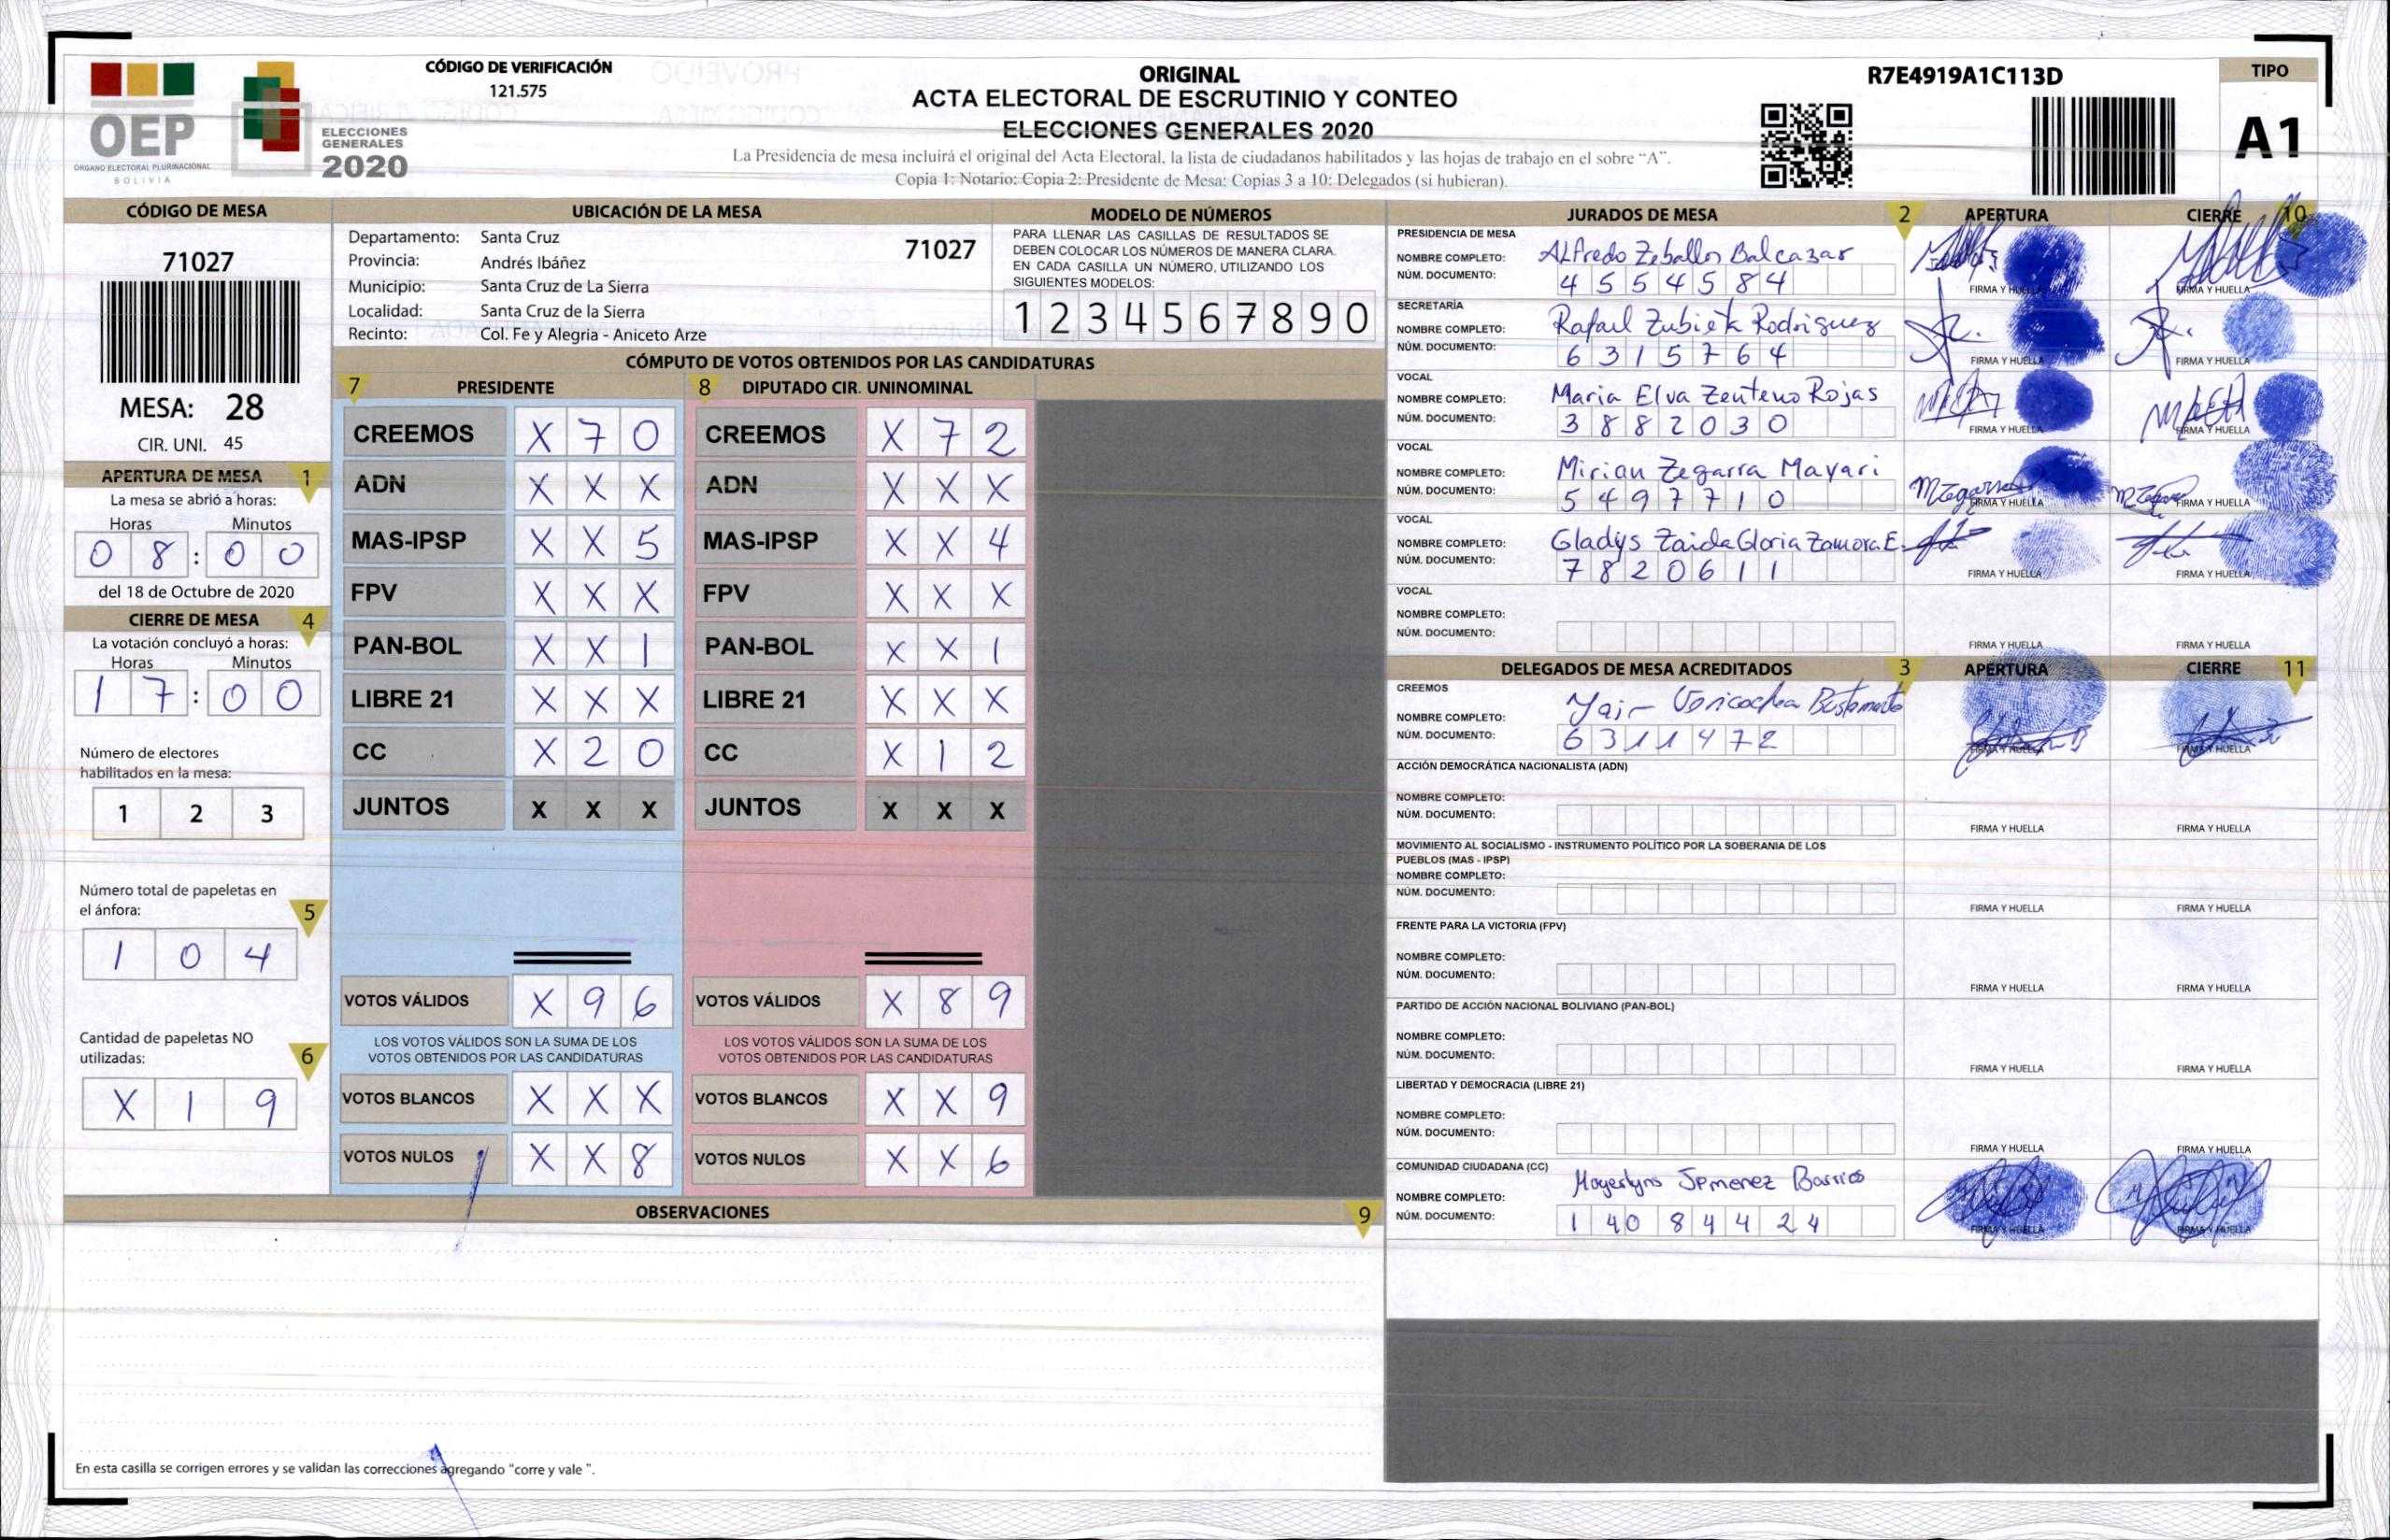 OEP
ÓRGANO ELECTORAL PLURINACIONAL
BOLIVIA
ELECCIONES
GENERALES
2020
CÓDIGO DE VERIFICACIÓN
121.575
ORIGINAL
ACTA ELECTORAL DE ESCRUTINIO Y CONTEO
ELECCIONES GENERALES 2020
La Presidencia de mesa incluirá el original del Acta Electoral, la lista de ciudadanos habilitados y las hojas de trabajo en el sobre "A".
Copia 1: Notario; Copia 2: Presidente de Mesa; Copias 3 a 10: Delegados (si hubieran).
R7E4919A1C113D
TIPO
A1
CÓDIGO DE MESA
71027
MESA: 28
CIR. UNI. 45
APERTURA DE MESA 1
La mesa se abrió a horas:
Horas Minutos
0 8 : 0 0
del 18 de Octubre de 2020
CIERRE DE MESA 4
La votación concluyó a horas:
Horas Minutos
1 7 : 0 0
Número de electores
habilitados en la mesa:
1 2 3
Número total de papeletas en
el ánfora: 5
1 0 4
Cantidad de papeletas NO
utilizadas: 6
X 1 9
UBICACIÓN DE LA MESA
Departamento: Santa Cruz 71027
Provincia: Andrés Ibáñez
Municipio: Santa Cruz de La Sierra
Localidad: Santa Cruz de la Sierra
Recinto: Col. Fe y Alegria - Aniceto Arze
MODELO DE NÚMEROS
PARA LLENAR LAS CASILLAS DE RESULTADOS SE
DEBEN COLOCAR LOS NÚMEROS DE MANERA CLARA.
EN CADA CASILLA UN NÚMERO, UTILIZANDO LOS
SIGUIENTES MODELOS:
1 2 3 4 5 6 7 8 9 0
CÓMPUTO DE VOTOS OBTENIDOS POR LAS CANDIDATURAS
7 PRESIDENTE 8 DIPUTADO CIR. UNINOMINAL
CREEMOS X 7 0 CREEMOS X 7 2
ADN X X X ADN X X X
MAS-IPSP X X 5 MAS-IPSP X X 4
FPV X X X FPV X X X
PAN-BOL X X 1 PAN-BOL X X 1
LIBRE 21 X X X LIBRE 21 X X X
CC X 2 0 CC X 1 2
JUNTOS X X X JUNTOS X X X
VOTOS VÁLIDOS X 9 6 VOTOS VÁLIDOS X 8 9
LOS VOTOS VÁLIDOS SON LA SUMA DE LOS LOS VOTOS VÁLIDOS SON LA SUMA DE LOS
VOTOS OBTENIDOS POR LAS CANDIDATURAS VOTOS OBTENIDOS POR LAS CANDIDATURAS
VOTOS BLANCOS X X X VOTOS BLANCOS X X 9
VOTOS NULOS X X 8 VOTOS NULOS X X 6
OBSERVACIONES 9
En esta casilla se corrigen errores y se validan las correcciones agregando "corre y vale ".
JURADOS DE MESA 2 APERTURA CIERRE 10
PRESIDENCIA DE MESA
NOMBRE COMPLETO: Alfredo Zeballos Balcazar
NÚM. DOCUMENTO: 4 5 5 4 5 8 4
FIRMA Y HUELLA FIRMA Y HUELLA
SECRETARÍA
NOMBRE COMPLETO: Rafael Zubieta Rodriguez
NÚM. DOCUMENTO: 6 3 1 5 7 6 4
FIRMA Y HUELLA FIRMA Y HUELLA
VOCAL
NOMBRE COMPLETO: Maria Elva Zenteno Rojas
NÚM. DOCUMENTO: 3 8 8 2 0 3 0
FIRMA Y HUELLA FIRMA Y HUELLA
VOCAL
NOMBRE COMPLETO: Mirian Zegarra Mayari
NÚM. DOCUMENTO: 5 4 9 7 7 1 0
FIRMA Y HUELLA FIRMA Y HUELLA
VOCAL
NOMBRE COMPLETO: Gladys Zaida Gloria Zamora E.
NÚM. DOCUMENTO: 7 8 2 0 6 1 1
FIRMA Y HUELLA FIRMA Y HUELLA
VOCAL
NOMBRE COMPLETO:
NÚM. DOCUMENTO:
FIRMA Y HUELLA FIRMA Y HUELLA
DELEGADOS DE MESA ACREDITADOS 3 APERTURA CIERRE 11
CREEMOS
NOMBRE COMPLETO: Yair
NÚM. DOCUMENTO: 6 3 1 1 4 7 2
FIRMA Y HUELLA FIRMA Y HUELLA
ACCIÓN DEMOCRÁTICA NACIONALISTA (ADN)
NOMBRE COMPLETO:
NÚM. DOCUMENTO:
FIRMA Y HUELLA FIRMA Y HUELLA
MOVIMIENTO AL SOCIALISMO - INSTRUMENTO POLÍTICO POR LA SOBERANIA DE LOS
PUEBLOS (MAS - IPSP)
NOMBRE COMPLETO:
NÚM. DOCUMENTO:
FIRMA Y HUELLA FIRMA Y HUELLA
FRENTE PARA LA VICTORIA (FPV)
NOMBRE COMPLETO:
NÚM. DOCUMENTO:
FIRMA Y HUELLA FIRMA Y HUELLA
PARTIDO DE ACCIÓN NACIONAL BOLIVIANO (PAN-BOL)
NOMBRE COMPLETO:
NÚM. DOCUMENTO:
FIRMA Y HUELLA FIRMA Y HUELLA
LIBERTAD Y DEMOCRACIA (LIBRE 21)
NOMBRE COMPLETO:
NÚM. DOCUMENTO:
FIRMA Y HUELLA FIRMA Y HUELLA
COMUNIDAD CIUDADANA (CC)
NOMBRE COMPLETO: Jemenez Barrios
NÚM. DOCUMENTO: 1 40 8 4 4 2 4
FIRMA Y HUELLA FIRMA Y HUELLA